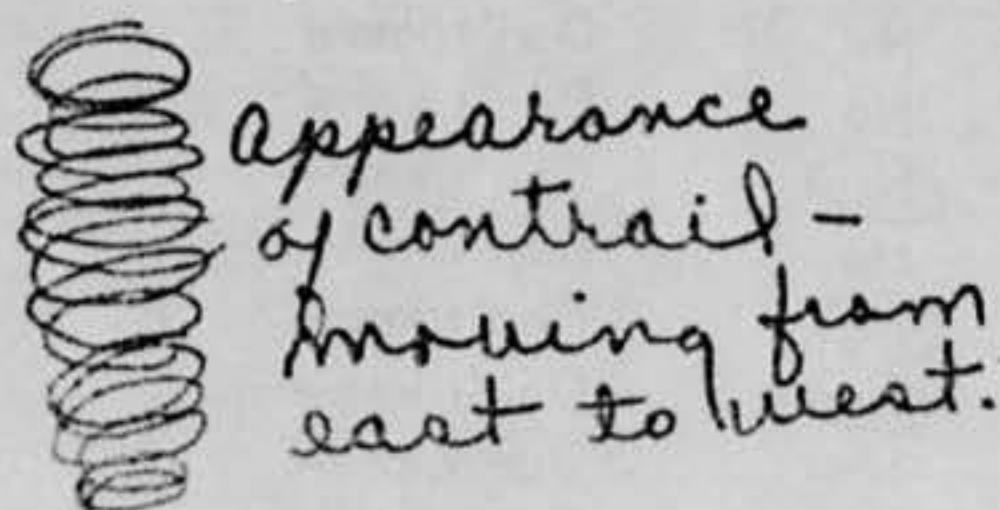 appearance
of contrail -
moving from
east to west.